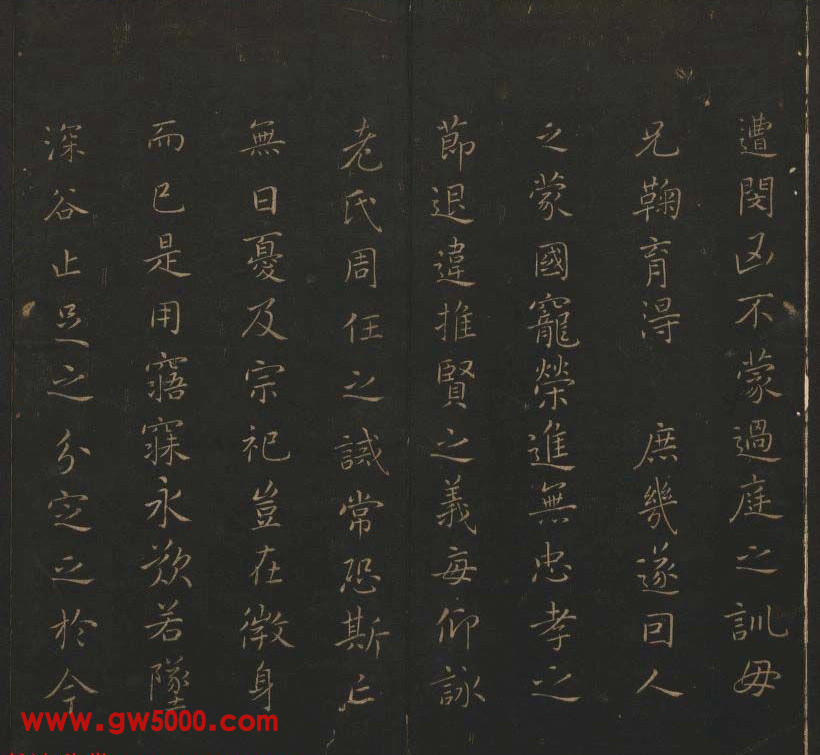 遭閔凶不蒙過庭之訓母
兄鞠育得 庶幾遂因人
之蒙國寵榮進無忠孝之
節退違推賢之義每仰詠
老氏周任之誡常恐斯亡
無日憂及宗祀豈在微身
而已是用寤寐永歎若墜
深谷止足之分定之於今
www.gw5000.com